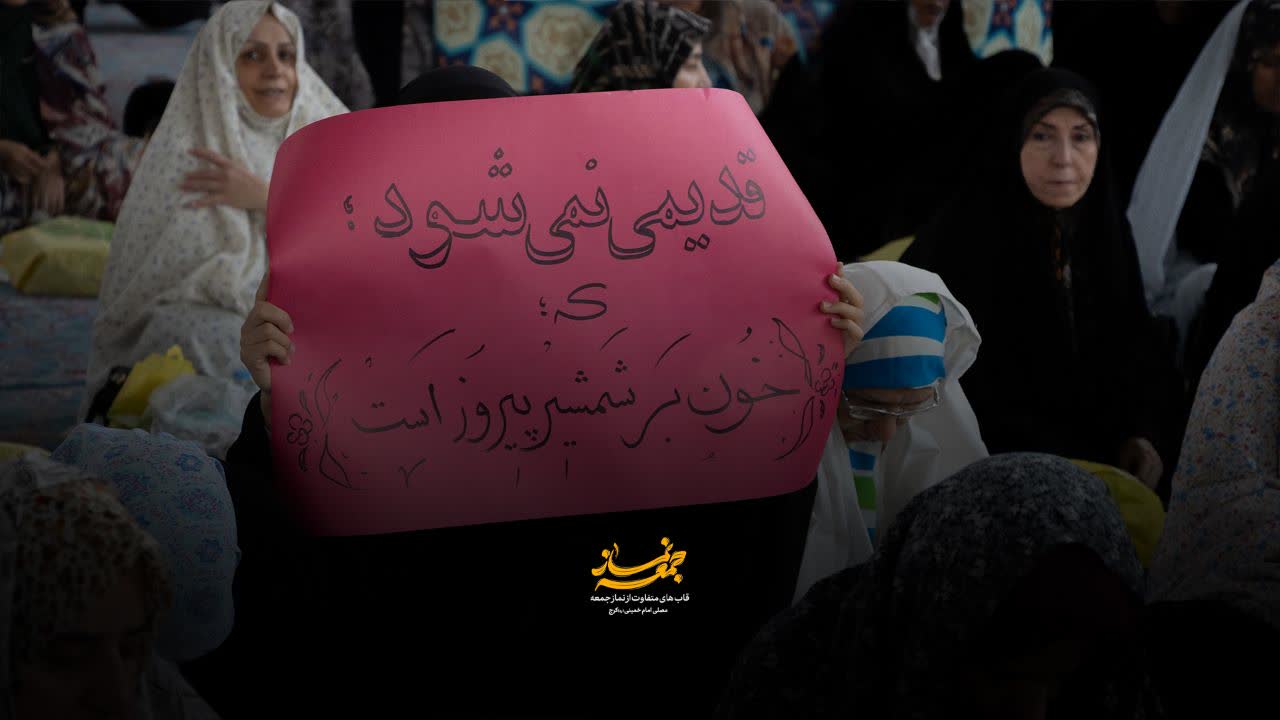 قدیمی نمی‌شود؛
که؛
(خُون بَر شَمشیر پیروَز اَست)
نماز جمعه
قاب های متفاوت از نماز جمعه
مصلی امام خمینی(ره) کرج